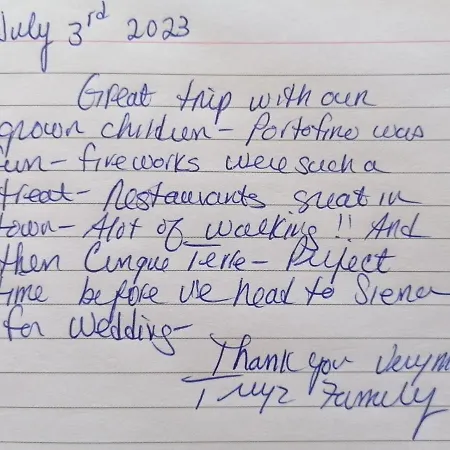 July 3rd 2023
Great trip with our
grown children - Portofino was
fun - fireworks were such a
treat - Restaurants great in
town - Alot of walking!! And
then Cinque Terre - Perfect
time before we head to Siena
for wedding -
Thank you very m
Family